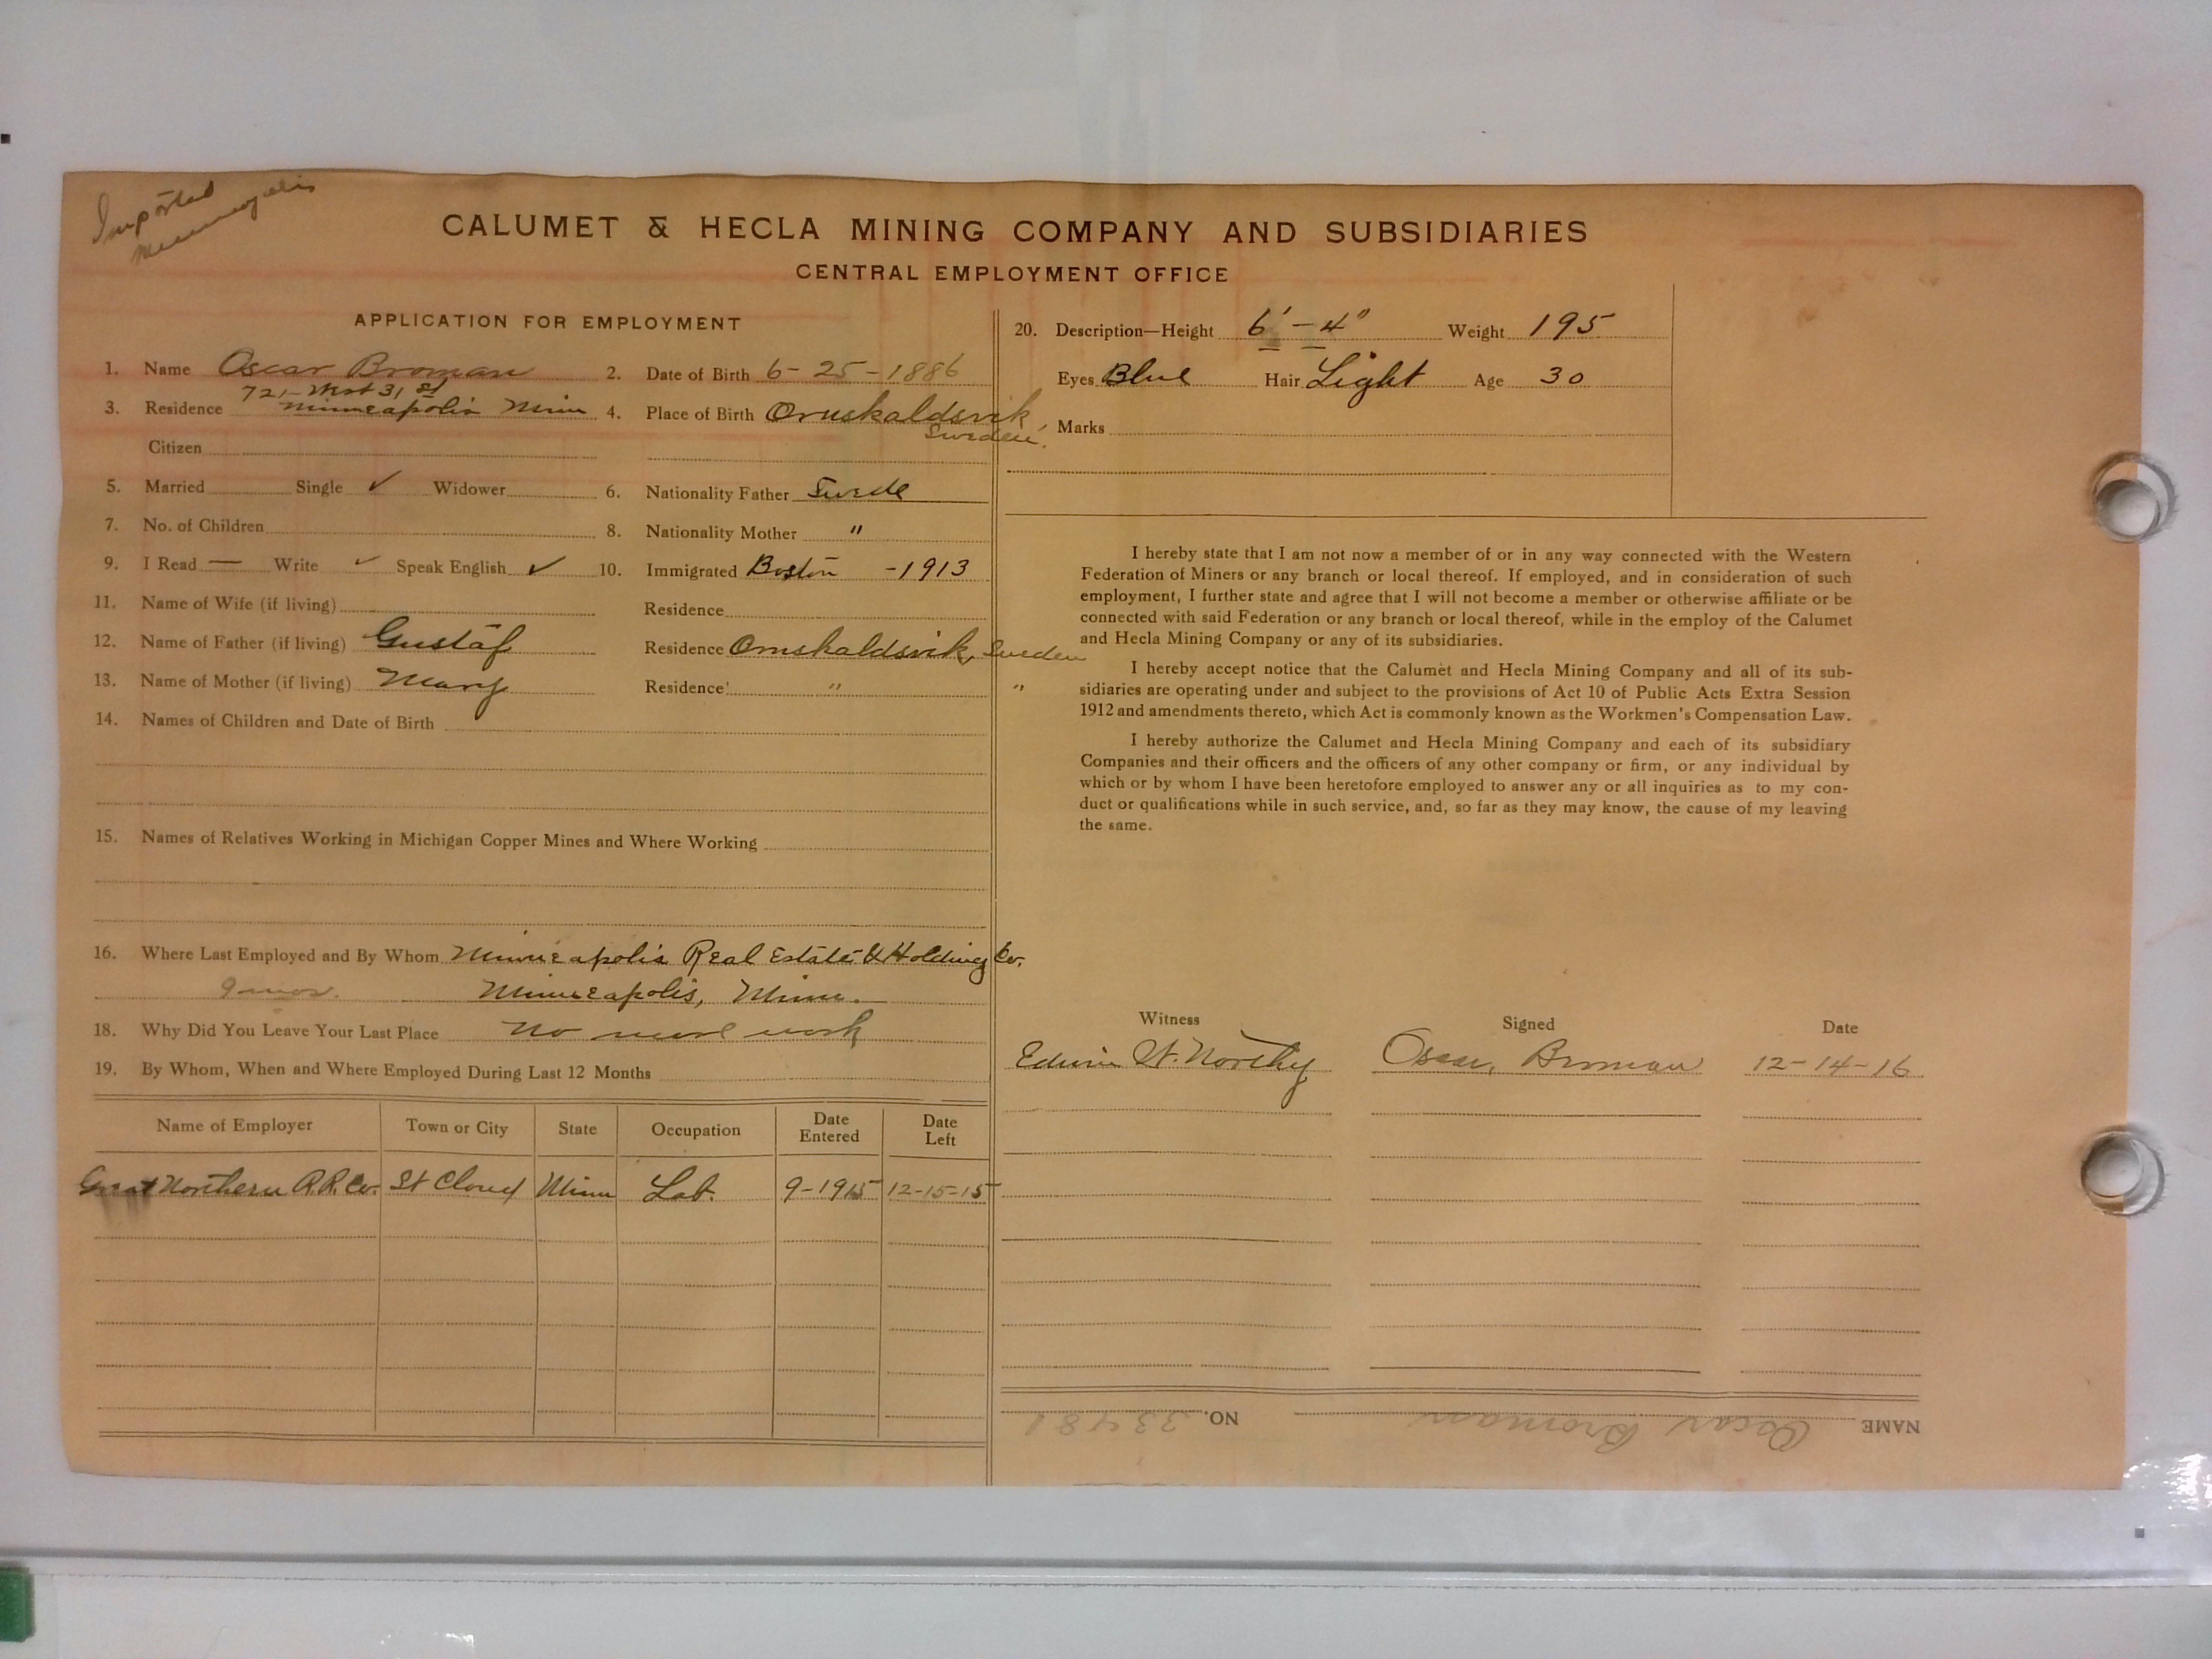 Imported
Minneapolis
CALUMET & HECLA MINING COMPANY AND SUBSIDIARIES
CENTRAL EMPLOYMENT OFFICE
APPLICATION FOR EMPLOYMENT
1. Name Oscar Broman 2. Date of Birth 6-25-1886
721-West 31st
3. Residence Minneapolis Minn 4. Place of Birth Ornskaldsvik
Sweden.
Citizen
5. Married Single ✓ Widower 6. Nationality Father Swede
7. No. of Children 8. Nationality Mother "
9. I Read — Write ✓ Speak English ✓ 10. Immigrated Boston -1913
11. Name of Wife (if living) Residence
12. Name of Father (if living) Gustaf Residence Ornskaldsvik, Sweden
13. Name of Mother (if living) Mary Residence " "
14. Names of Children and Date of Birth
15. Names of Relatives Working in Michigan Copper Mines and Where Working
16. Where Last Employed and By Whom Minneapolis Real Estate & Holding Co.
9 mos. Minneapolis, Minn.
18. Why Did You Leave Your Last Place No more work
19. By Whom, When and Where Employed During Last 12 Months
Name of Employer Town or City State Occupation Date Entered Date Left
Great Northern R.R. Co. St Cloud Minn Lab. 9-1915 12-15-15
20. Description—Height 6'-4" Weight 195
Eyes Blue Hair Light Age 30
Marks
I hereby state that I am not now a member of or in any way connected with the Western
Federation of Miners or any branch or local thereof. If employed, and in consideration of such
employment, I further state and agree that I will not become a member or otherwise affiliate or be
connected with said Federation or any branch or local thereof, while in the employ of the Calumet
and Hecla Mining Company or any of its subsidiaries.
I hereby accept notice that the Calumet and Hecla Mining Company and all of its sub-
sidiaries are operating under and subject to the provisions of Act 10 of Public Acts Extra Session
1912 and amendments thereto, which Act is commonly known as the Workmen's Compensation Law.
I hereby authorize the Calumet and Hecla Mining Company and each of its subsidiary
Companies and their officers and the officers of any other company or firm, or any individual by
which or by whom I have been heretofore employed to answer any or all inquiries as to my con-
duct or qualifications while in such service, and, so far as they may know, the cause of my leaving
the same.
Witness Signed Date
Edwin W. Northy Oscar Broman 12-14-16
NAME Oscar Broman NO. 33481